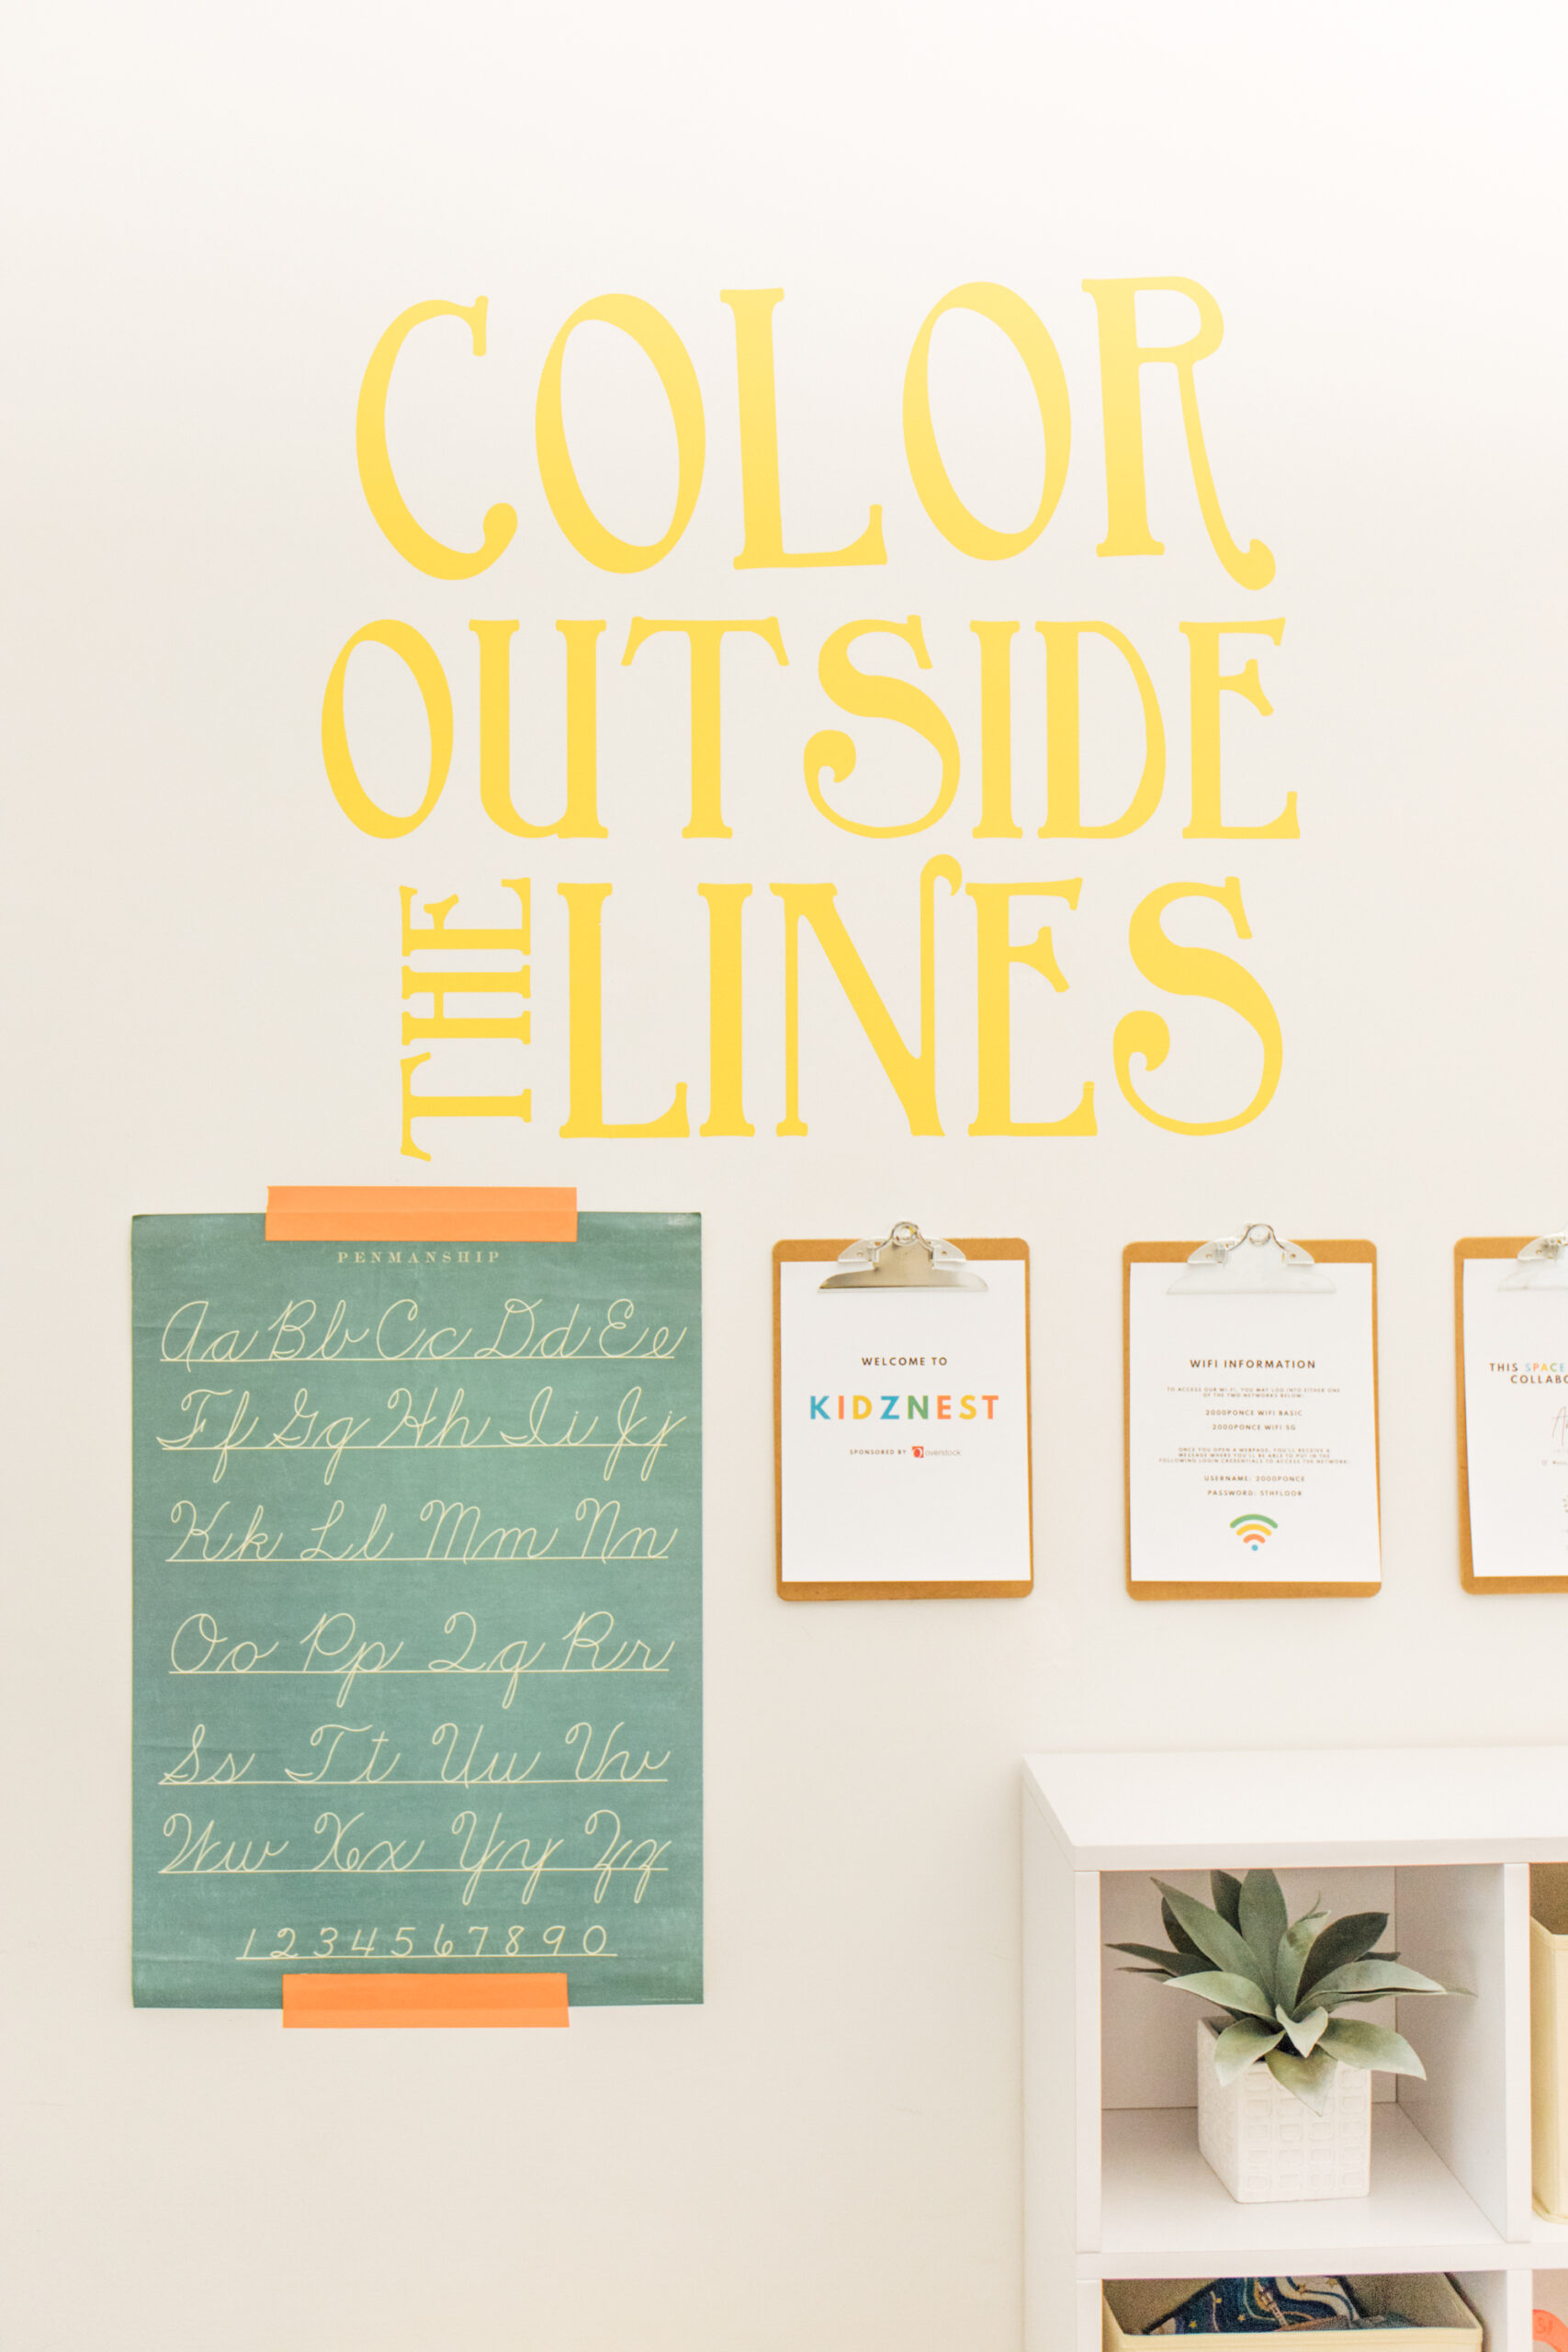 COLOR
OUTSIDE
THE LINES
PENMANSHIP
Aa Bb Cc Dd Ee
Ff Gg Hh Ii Jj
Kk Ll Mm Nn
Oo Pp Qq Rr
Ss Tt Uu Vv
Ww Xx Yy Zz
1234567890
WELCOME TO
KIDZNEST
SPONSORED BY overstock
WIFI INFORMATION
TO ACCESS OUR WI-FI, YOU MAY LOG INTO EITHER ONE
OF THE TWO NETWORKS BELOW:
2000PONCE WIFI BASIC
2000PONCE WIFI 5G
ONCE YOU OPEN A WEBPAGE, YOU'LL RECEIVE A
MESSAGE WHERE YOU'LL BE ABLE TO PUT IN THE
FOLLOWING LOGIN CREDENTIALS TO ACCESS THE NETWORK:
USERNAME: 2000PONCE
PASSWORD: 5THFLOOR
THIS SPACE
COLLABO